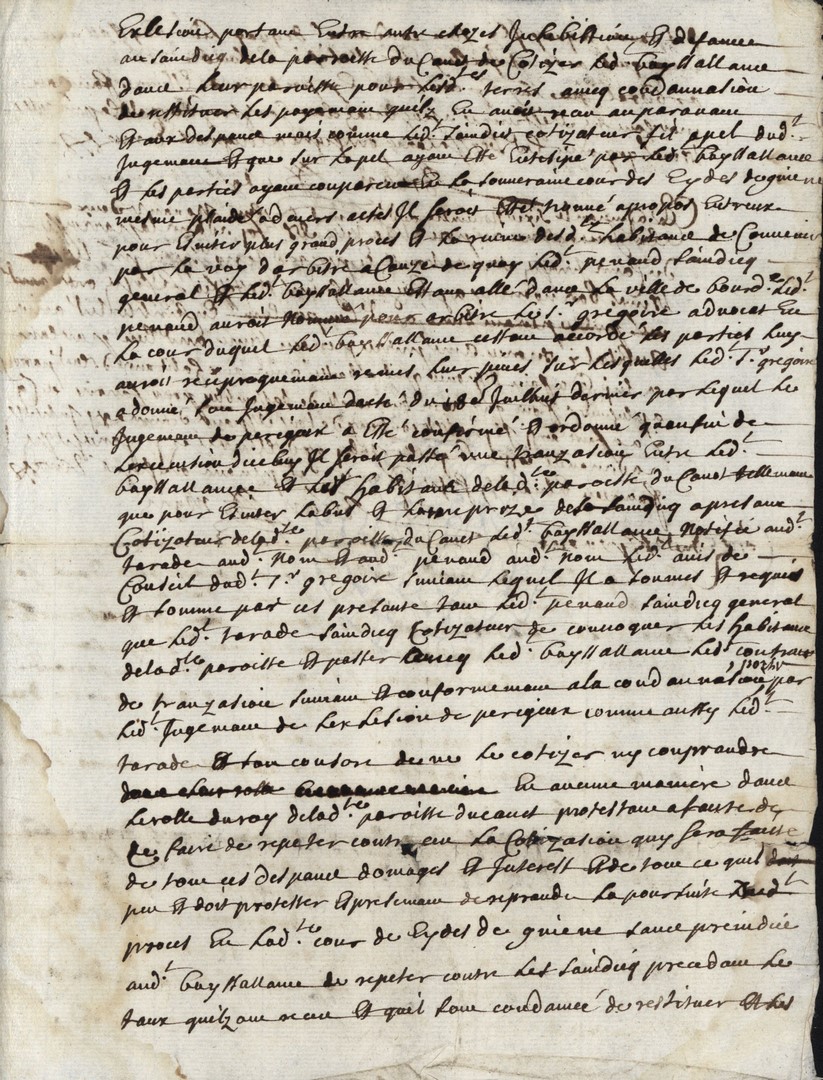 Exlesion portant Entre autre chozes Inhibission Et defance
au saindicq dela paroisse du Canet de Cotizer led.t bayssallance
dans leur paroisse pour lesd.tes terres avecq condamnasion
de restituer les payemans quilz En avoit receu auparavant
Et aux despance mais comme led.t saindic cotizateur fit appel dud.t
Jugemant Et que sur lapel ayant esté Entisipé par led.t bayssallance
Et les parties ayant compareu En la souveraine cour des Eydes de guiene
mesme plaidé advers actes Il seroit Esté trouvé apropos Entreux
pour Esviter plus grand proces Et la ruine desd.ts habitans de Convenir
par la voy darbitre a Cauze de quoy led.t penaud saindicq
general Et led.t bayssallance Estant allé dans la ville de bourd.x led.t
penaud auroit Nommé pour arbitre le s.r gregoire advocat En
la cour duquel led.t bayssallance estant accordé les parties luy
auroit reciproquemant remis leur pieces sur lesquelles led.t s.r gregoire
a donné son Jugemant dacté du 18e Juilhet dernier par lequel le
Jugemant de perigux a Esté confirmé Et ordonné quanfin de
lexecution dicelluy Il seroit passé une tranzasion Entre led.t
bayssallance Et les habitans delad.te paroisse du Canet tellemant
que pour Esviter labus Et la surprize dela saindicq apresant
Cotizateur delad.te paroisse du Canet led.t bayssallance Notifie aud.t
tarade aud.t Nom Et aud.t penaud aud.t Nom led.t avis de
Conseil dud.t s.r gregoire suivant lequel Il a sommés Et requis
Et somme par ces presante tant led.t penaud saindicq general
que led.t tarade saindicq Cotizateur de convoquer les habitans
delad.te paroisse Et passer avecq led.t bayssallance led.t contract
de tranzasion suivant Et conformemant ala condamnasion portée par
led.t Jugemant de lexlesion de perigeux comme aussy led.t
tarade Et son consors de ne le cotizer ny comprandre
En aucune maniere dans
le rolle du roy delad.te paroisse du canet protestant a faute de
le faire de repeter contre eux la Cotizasion quy sera faicte
de tous ces despans domages Et Interest Et de tout ce quil
peu Et doit protester Et presemant de reprandre la poursuite dud.t
proces En lad.te cour de Eydes de guiene sans preiudice
aud.t bayssallance de repeter contre les saindicq precedant le
taux quilz ont receu Et quil sont condamné de restituer Et les